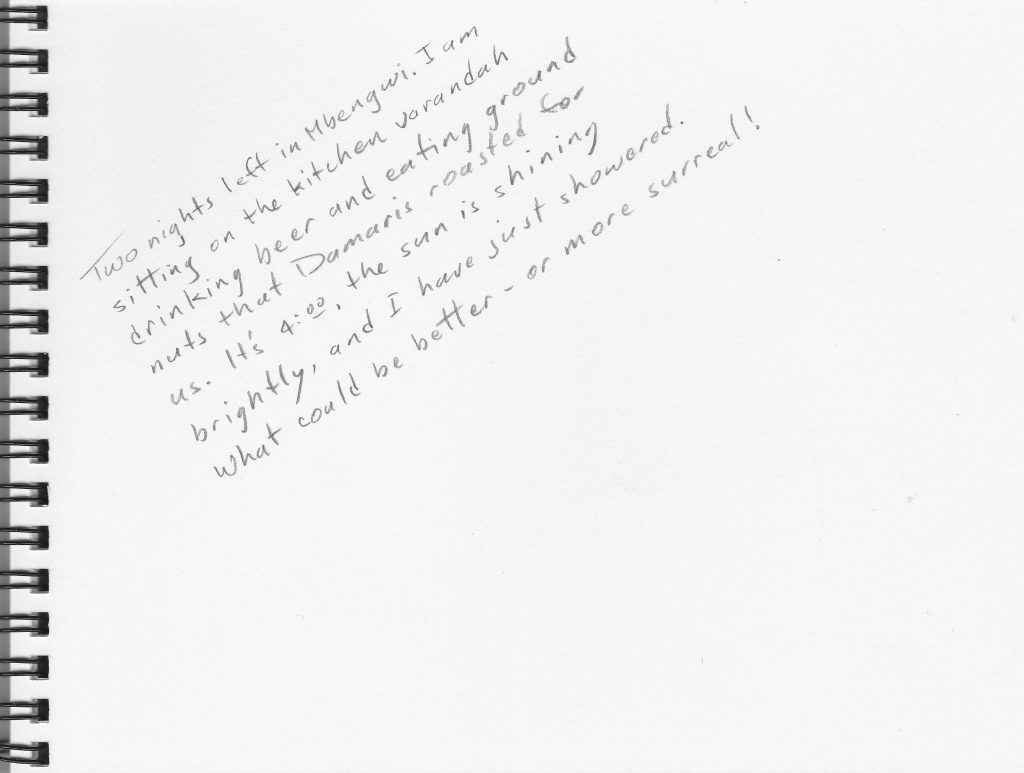 Two nights left in Mbengwi. I am
sitting on the kitchen varandah
drinking beer and eating ground
nuts that Damaris roasted for
us. It's 4:00, the sun is shining
brightly, and I have just showered.
What could be better - or more surreal!